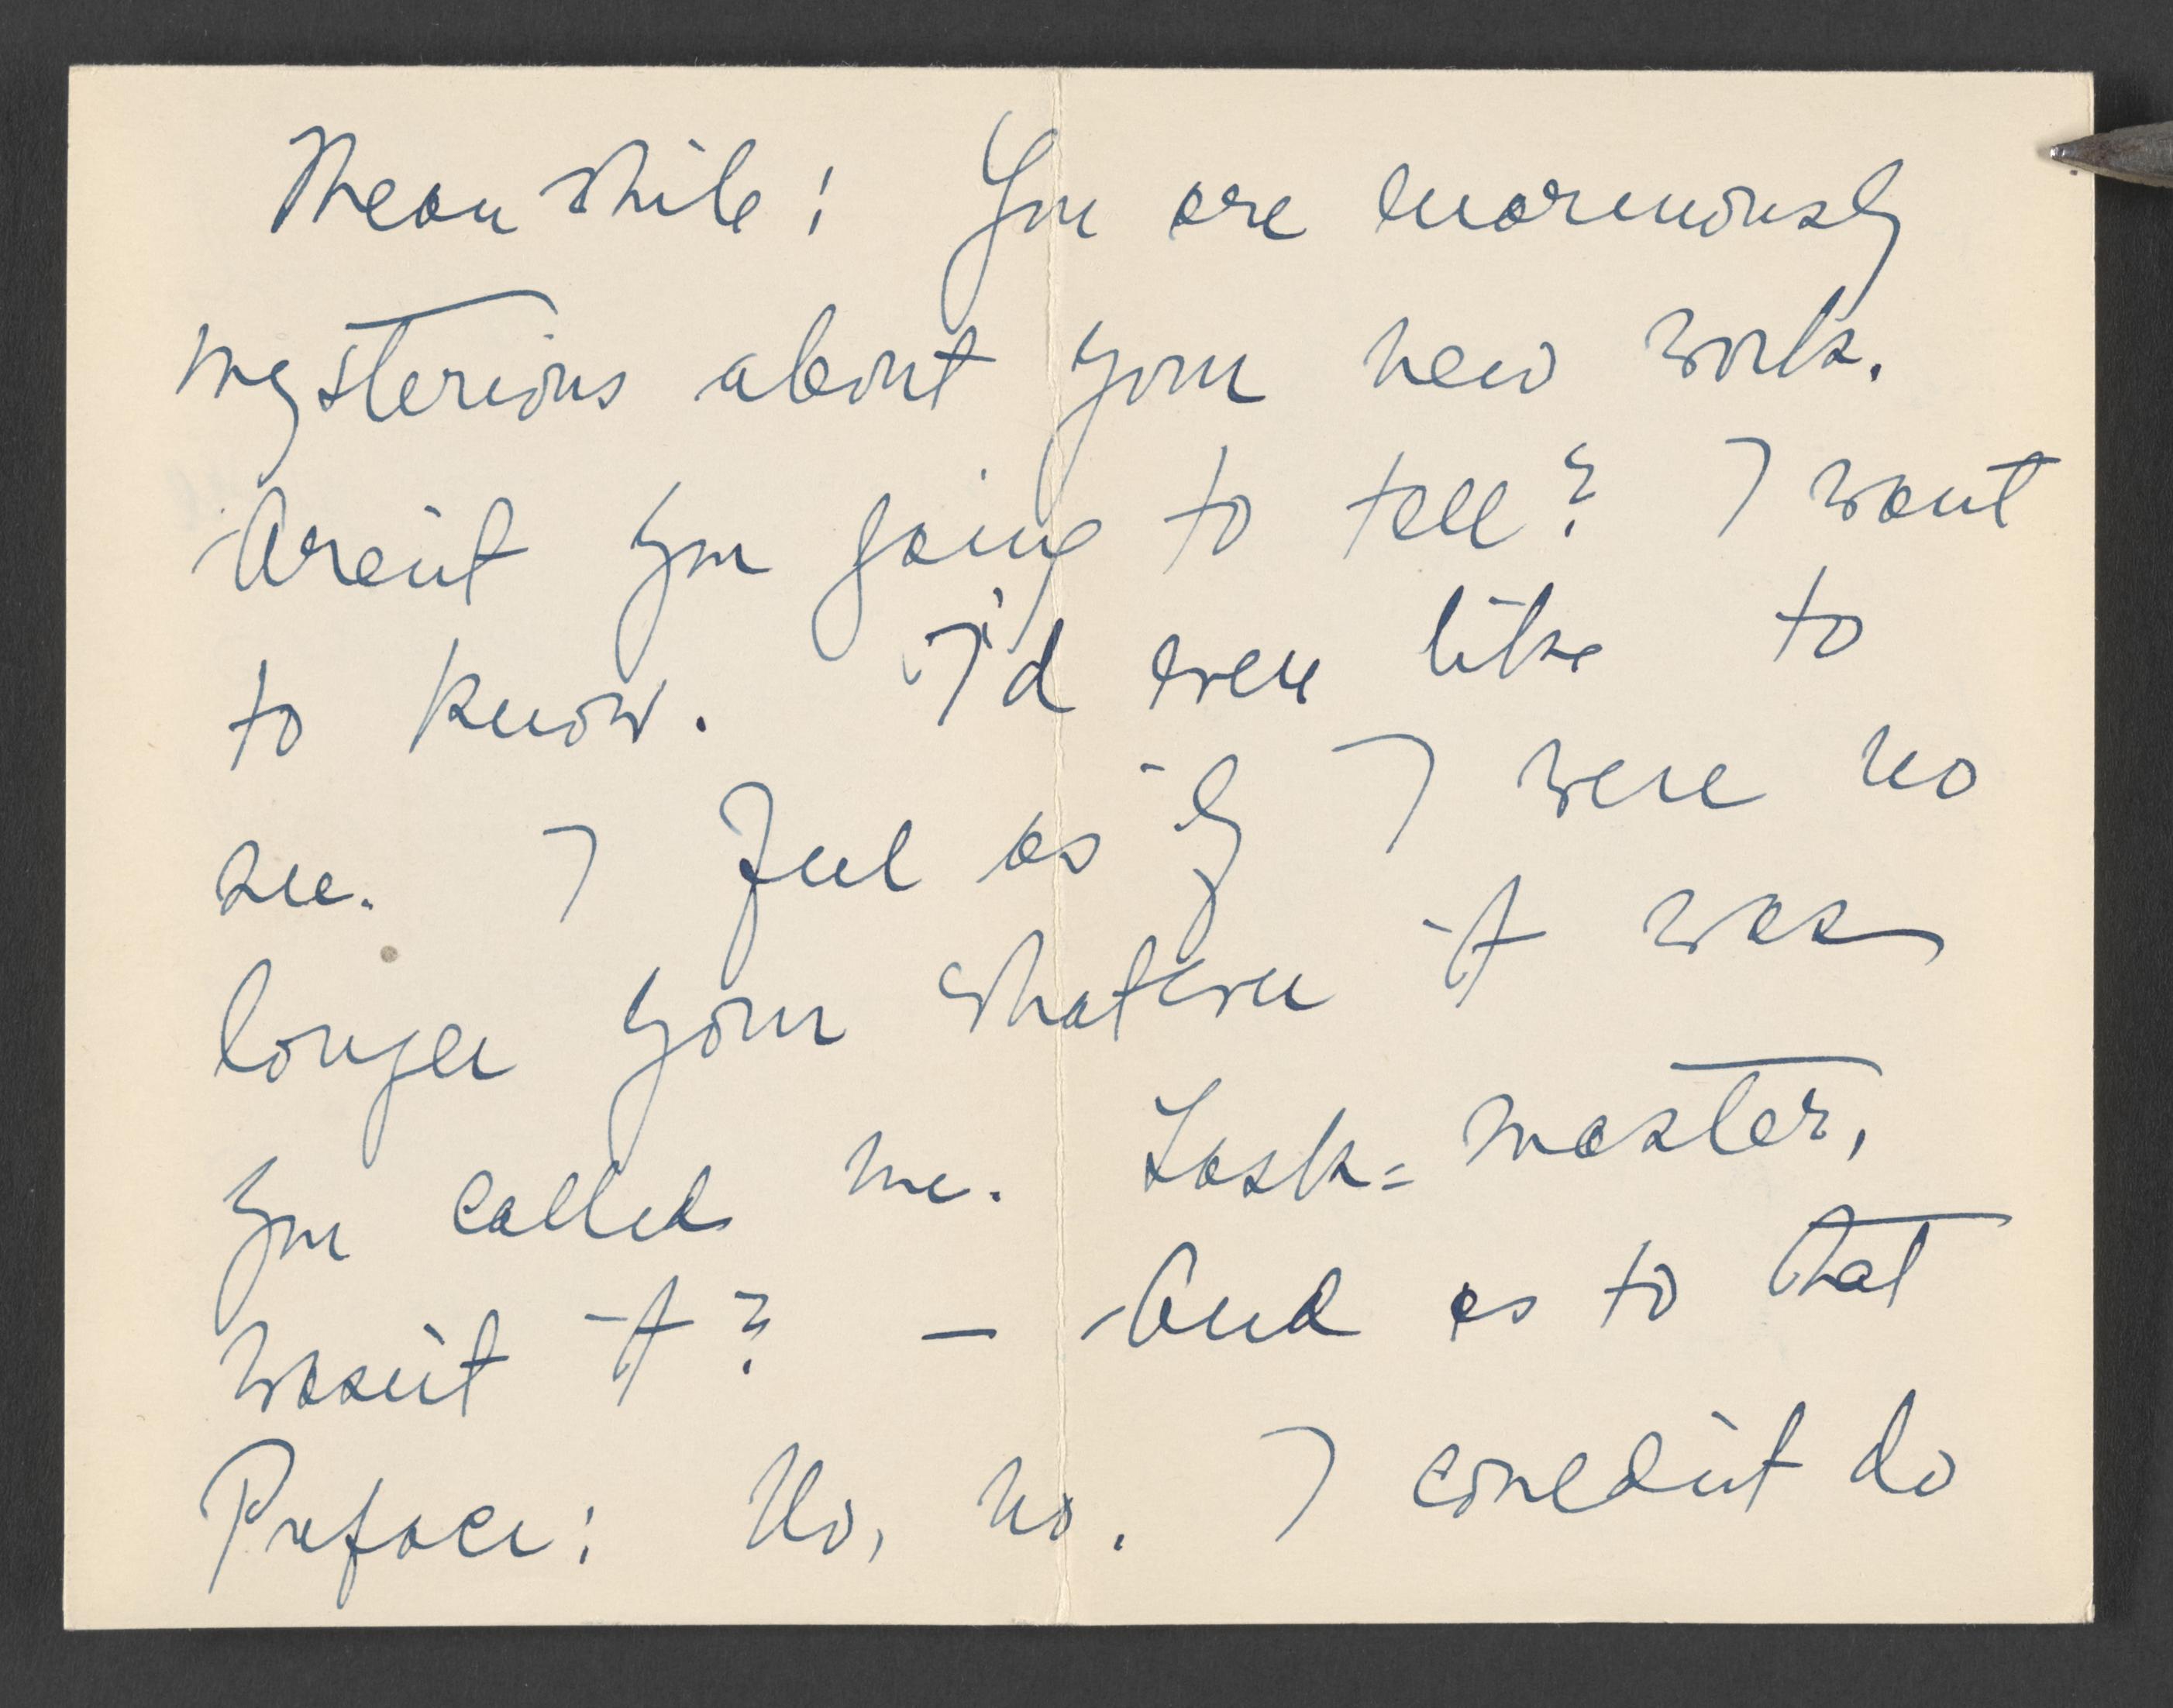 Meanwhile! You are enormously
mysterious about your new work.
Aren't you going to tell? I want
to know. I'd even like to
see. I feel as if I were no
longer your whatever it was
you called me. Task-master,
wasn't it? — And as to that
Preface: No, no. I couldn't do